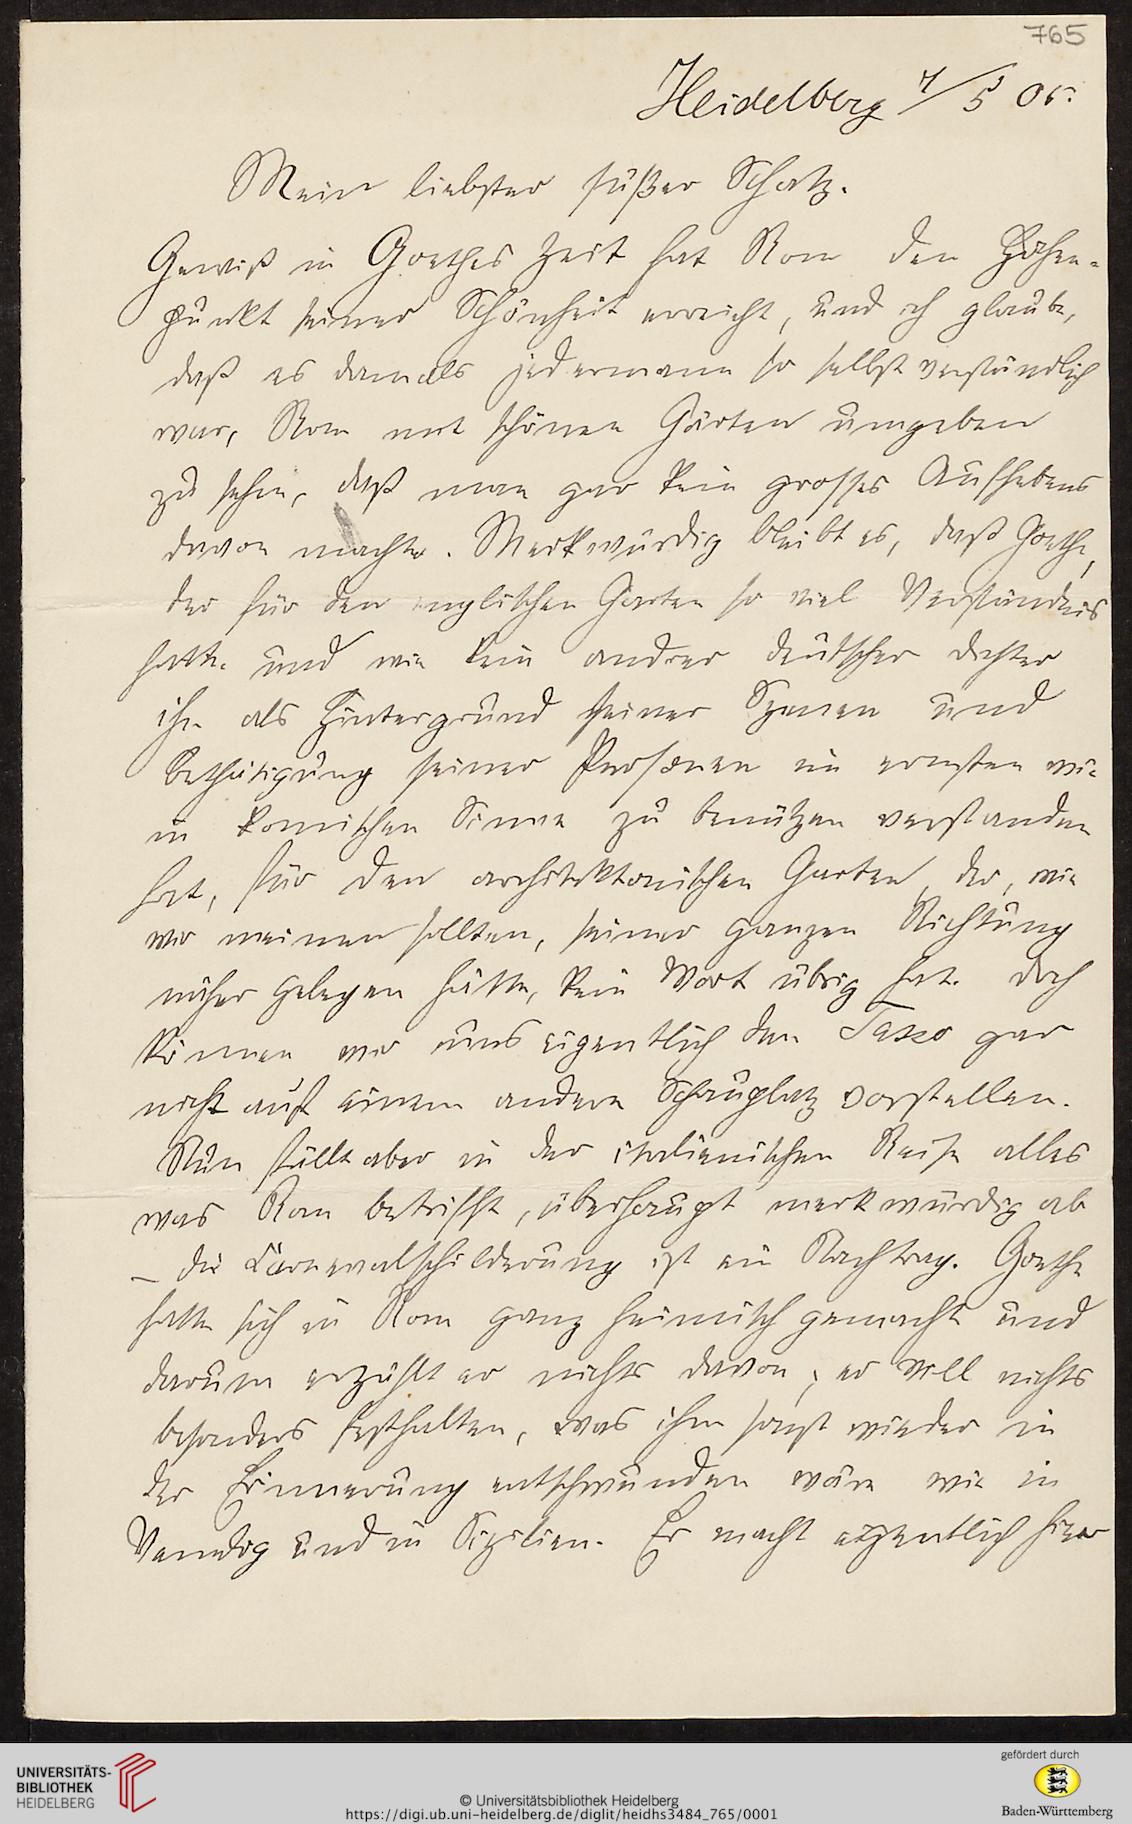 765
Heidelberg 7/5 05.
Mein liebster süßer Schatz.
Gewiß in Goethes Zeit hat Rom den Höhen-
punkt seiner Schönheit erreicht, und ich glaube,
daß es damals jedermann so selbstverständlich
war, Rom mit schönen Gärten umgeben
zu sehen, daß man gar kein grosses Aufhebens
davon machte. Merkwürdig bleibt es, daß Goethe,
der für den englischen Garten so viel Verständnis
hatte und wie kein andrer deutscher Dichter
ihn als Hintergrund seiner Szenen und
Bethätigung seiner Personen im ernsten wie
in komischen Sinne zu benützen verstanden
hat, für den architektonischen Garten, der, wie
wir meinen sollten, seiner ganzen Richtung
näher gelegen hätte, kein Wort übrig hat. Doch
können wir uns eigentlich den Tasso gar
nicht auf einem andern Schauplatz vorstellen.
Nun fällt aber in der italienischen Reise alles
was Rom betrifft, überhaupt merkwürdig ab
– die Carnevalschilderung ist ein Nachtrag. Goethe
hatte sich in Rom ganz heimisch gemacht und
darum erzählt er nichts davon, er will nichts
besonders festhalten, was ihm sonst wieder in
der Erinnerung entschwunden wäre wie in
Venedig und in Sizilien. Er macht eigentlich hier
UNIVERSITÄTS-
BIBLIOTHEK
HEIDELBERG
© Universitätsbibliothek Heidelberg
https://digi.ub.uni-heidelberg.de/diglit/heidhs3484_765/0001
gefördert durch
Baden-Württemberg